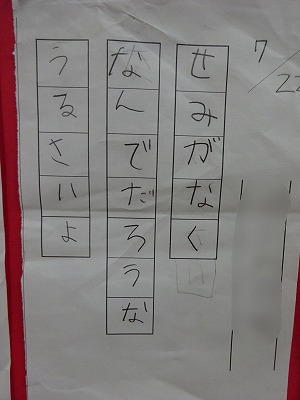 7/22
せみがなく
なんでだろうな
うるさいよ